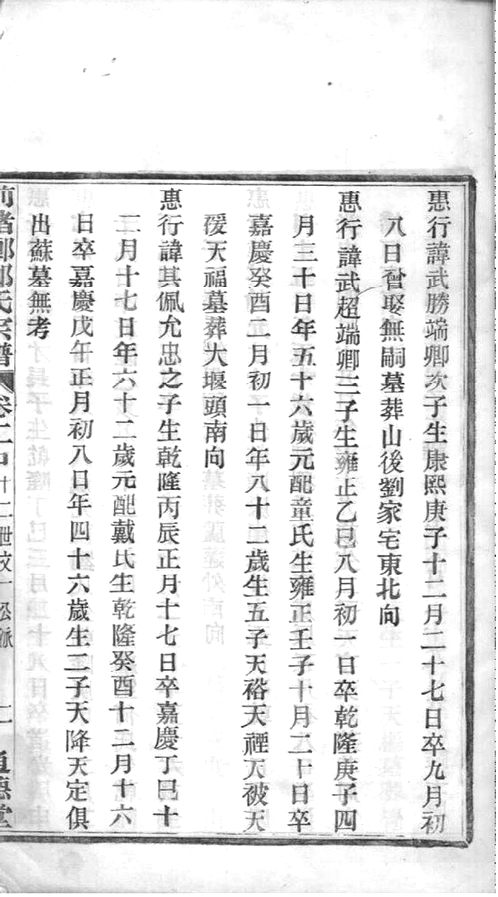 惠行諱武勝端卿次子生康熙庚子十二月二十七日卒九月初
八日曾娶無嗣墓葬山後劉家宅東北向
惠行諱武超端卿三子生雍正乙巳八月初一日卒乾隆庚子四
月三十日年五十六歲元配童氏生雍正壬子十月二十日卒
嘉慶癸酉二月初一日年八十二歲生五子天裕天禋天被天
天福墓葬大堰頭南向
惠行諱其佩允忠之子生乾隆丙辰正月十七日卒嘉慶丁巳十
二月十七日年六十二歲元配戴氏生乾隆癸酉十二月十六
日卒嘉慶戊午正月初八日年四十六歲生二子天降天定俱
出蘇墓無考
氏宗譜 卷二 道德堂